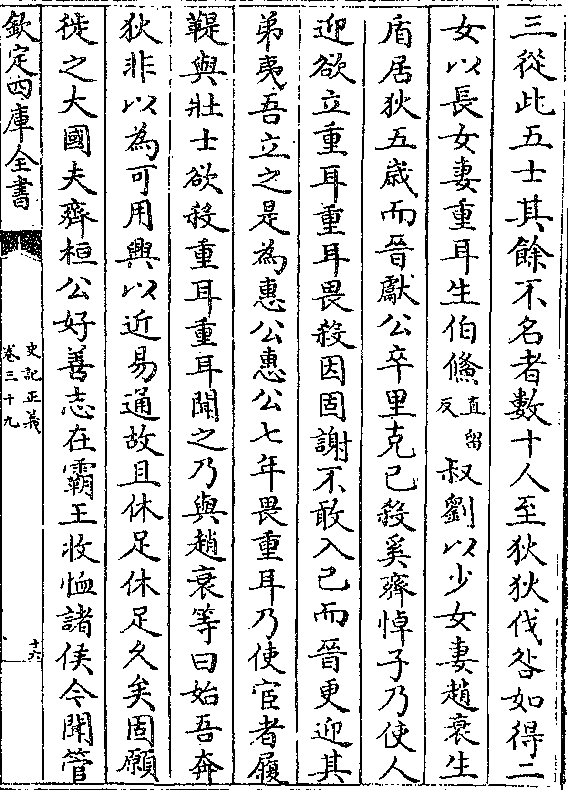 三從此五士其餘不名者數十人至狄狄伐咎如得二
女以長女妻重耳生伯鯈直留反叔劉以少女妻趙衰生
盾居狄五歲而晉獻公卒里克已殺奚齊悼子乃使人
迎欲立重耳重耳畏殺因固謝不敢入已而晉更迎其
弟夷吾立之是為惠公惠公七年畏重耳乃使宦者履
鞮與壯士欲殺重耳重耳聞之乃與趙衰等曰始吾奔
狄非以為可用興以近易通故且休足休足久矣固願
徙之大國夫齊桓公好善志在霸王收恤諸侯今聞管
欽定四庫全書
史記正義
卷三十九
十六